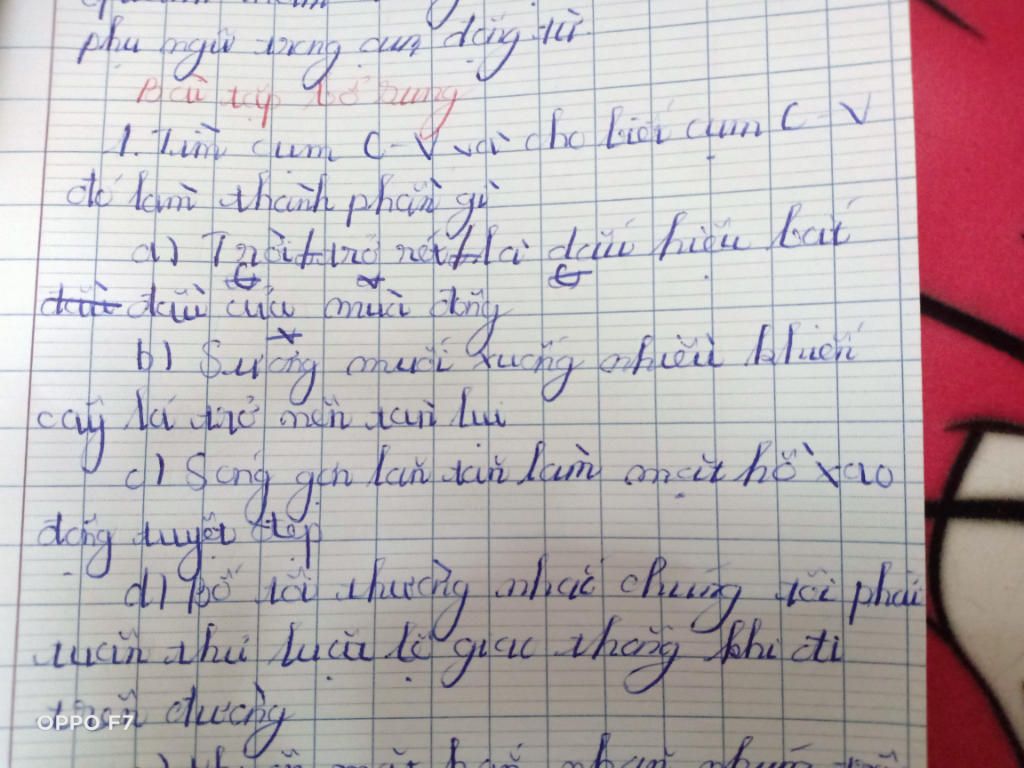 phụ ngữ trong cụm động từ.
Bài tập bổ sung
1. Tìm cụm C-V và cho biết cụm C-V
đó làm thành phần gì
a) Trời trở rét là dấu hiệu bắt
đầu của mùa đông
b) Sương muối xuống nhiều khiến
cây lá trở nên tàn lụi
c) Sóng gợn lăn tăn làm mặt hồ xao
động tuyệt đẹp
d) Bố tôi thường nhắc chúng tôi phải
tuân thủ luật lệ giao thông khi đi
trên đường
OPPO F7